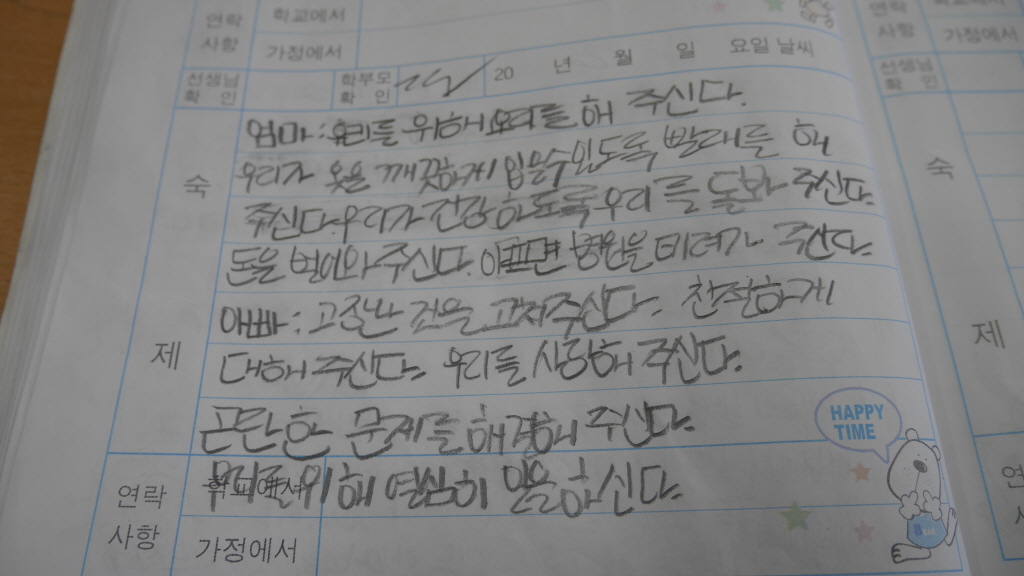 연락 학교에서
사항 가정에서
선생님 확인 학부모 확인 20 년 월 일 요일 날씨
숙제
엄마: 우리를 위해 요리를 해 주신다.
우리가 옷을 깨끗하게 입을수있도록 빨래를 해
주신다. 우리가 건강하도록 우리를 돌봐 주신다.
돈을 벌어와 주신다. 아프면 병원을 데려가 주신다.
아빠: 고장난 것을 고쳐주신다. 친절하게
대해 주신다. 우리를 사랑해 주신다.
곤란한 문제를 해결해 주신다.
우리를 위해 열심히 일을 하신다.
연락 학교에서
사항 가정에서
HAPPY
TIME
연락
사항
학교에서
가정에서
선생님
확인
숙
제
연
사